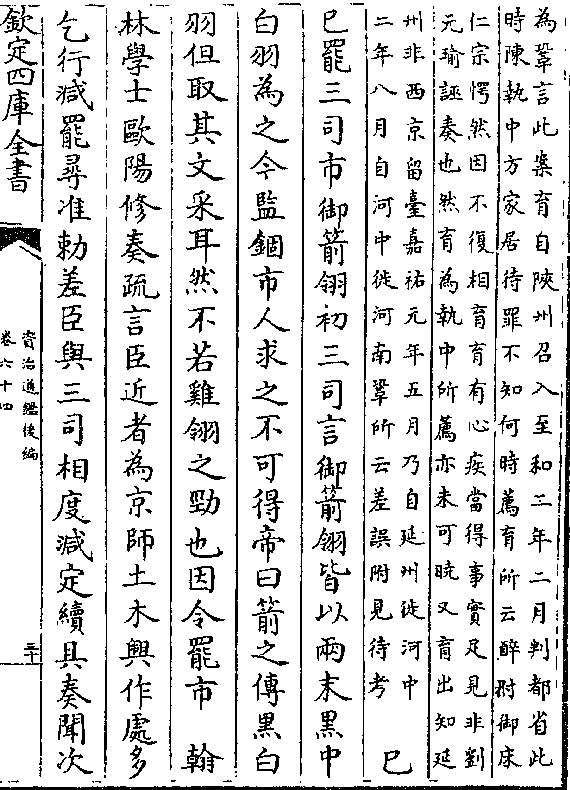 為鞏言此案育自陜州召入至和二年二月判都省此
時陳執中方家居待罪不知何時薦育所云醉拊御床
仁宗愕然因不復相育育有心疾當得事實足見非劉
元瑜誣奏也然育為執中所薦亦未可曉又育出知延
州非西京留臺嘉祐元年五月乃自延州徙河中
二年八月自河中徙河南鞏所云差誤附見待考
已
巳罷三司市御箭翎初三司言御箭翎皆以兩末黑中
白羽為之今監錮市人求之不可得帝曰箭之傅黑白
羽但取其文采耳然不若雞翎之勁也因令罷市　翰
林學士歐陽修奏疏言臣近者為京師土木興作處多
乞行減罷尋准勅差臣與三司相度減定續具奏聞次
欽定四庫全書
資治通鑑後編
卷六十四
三十